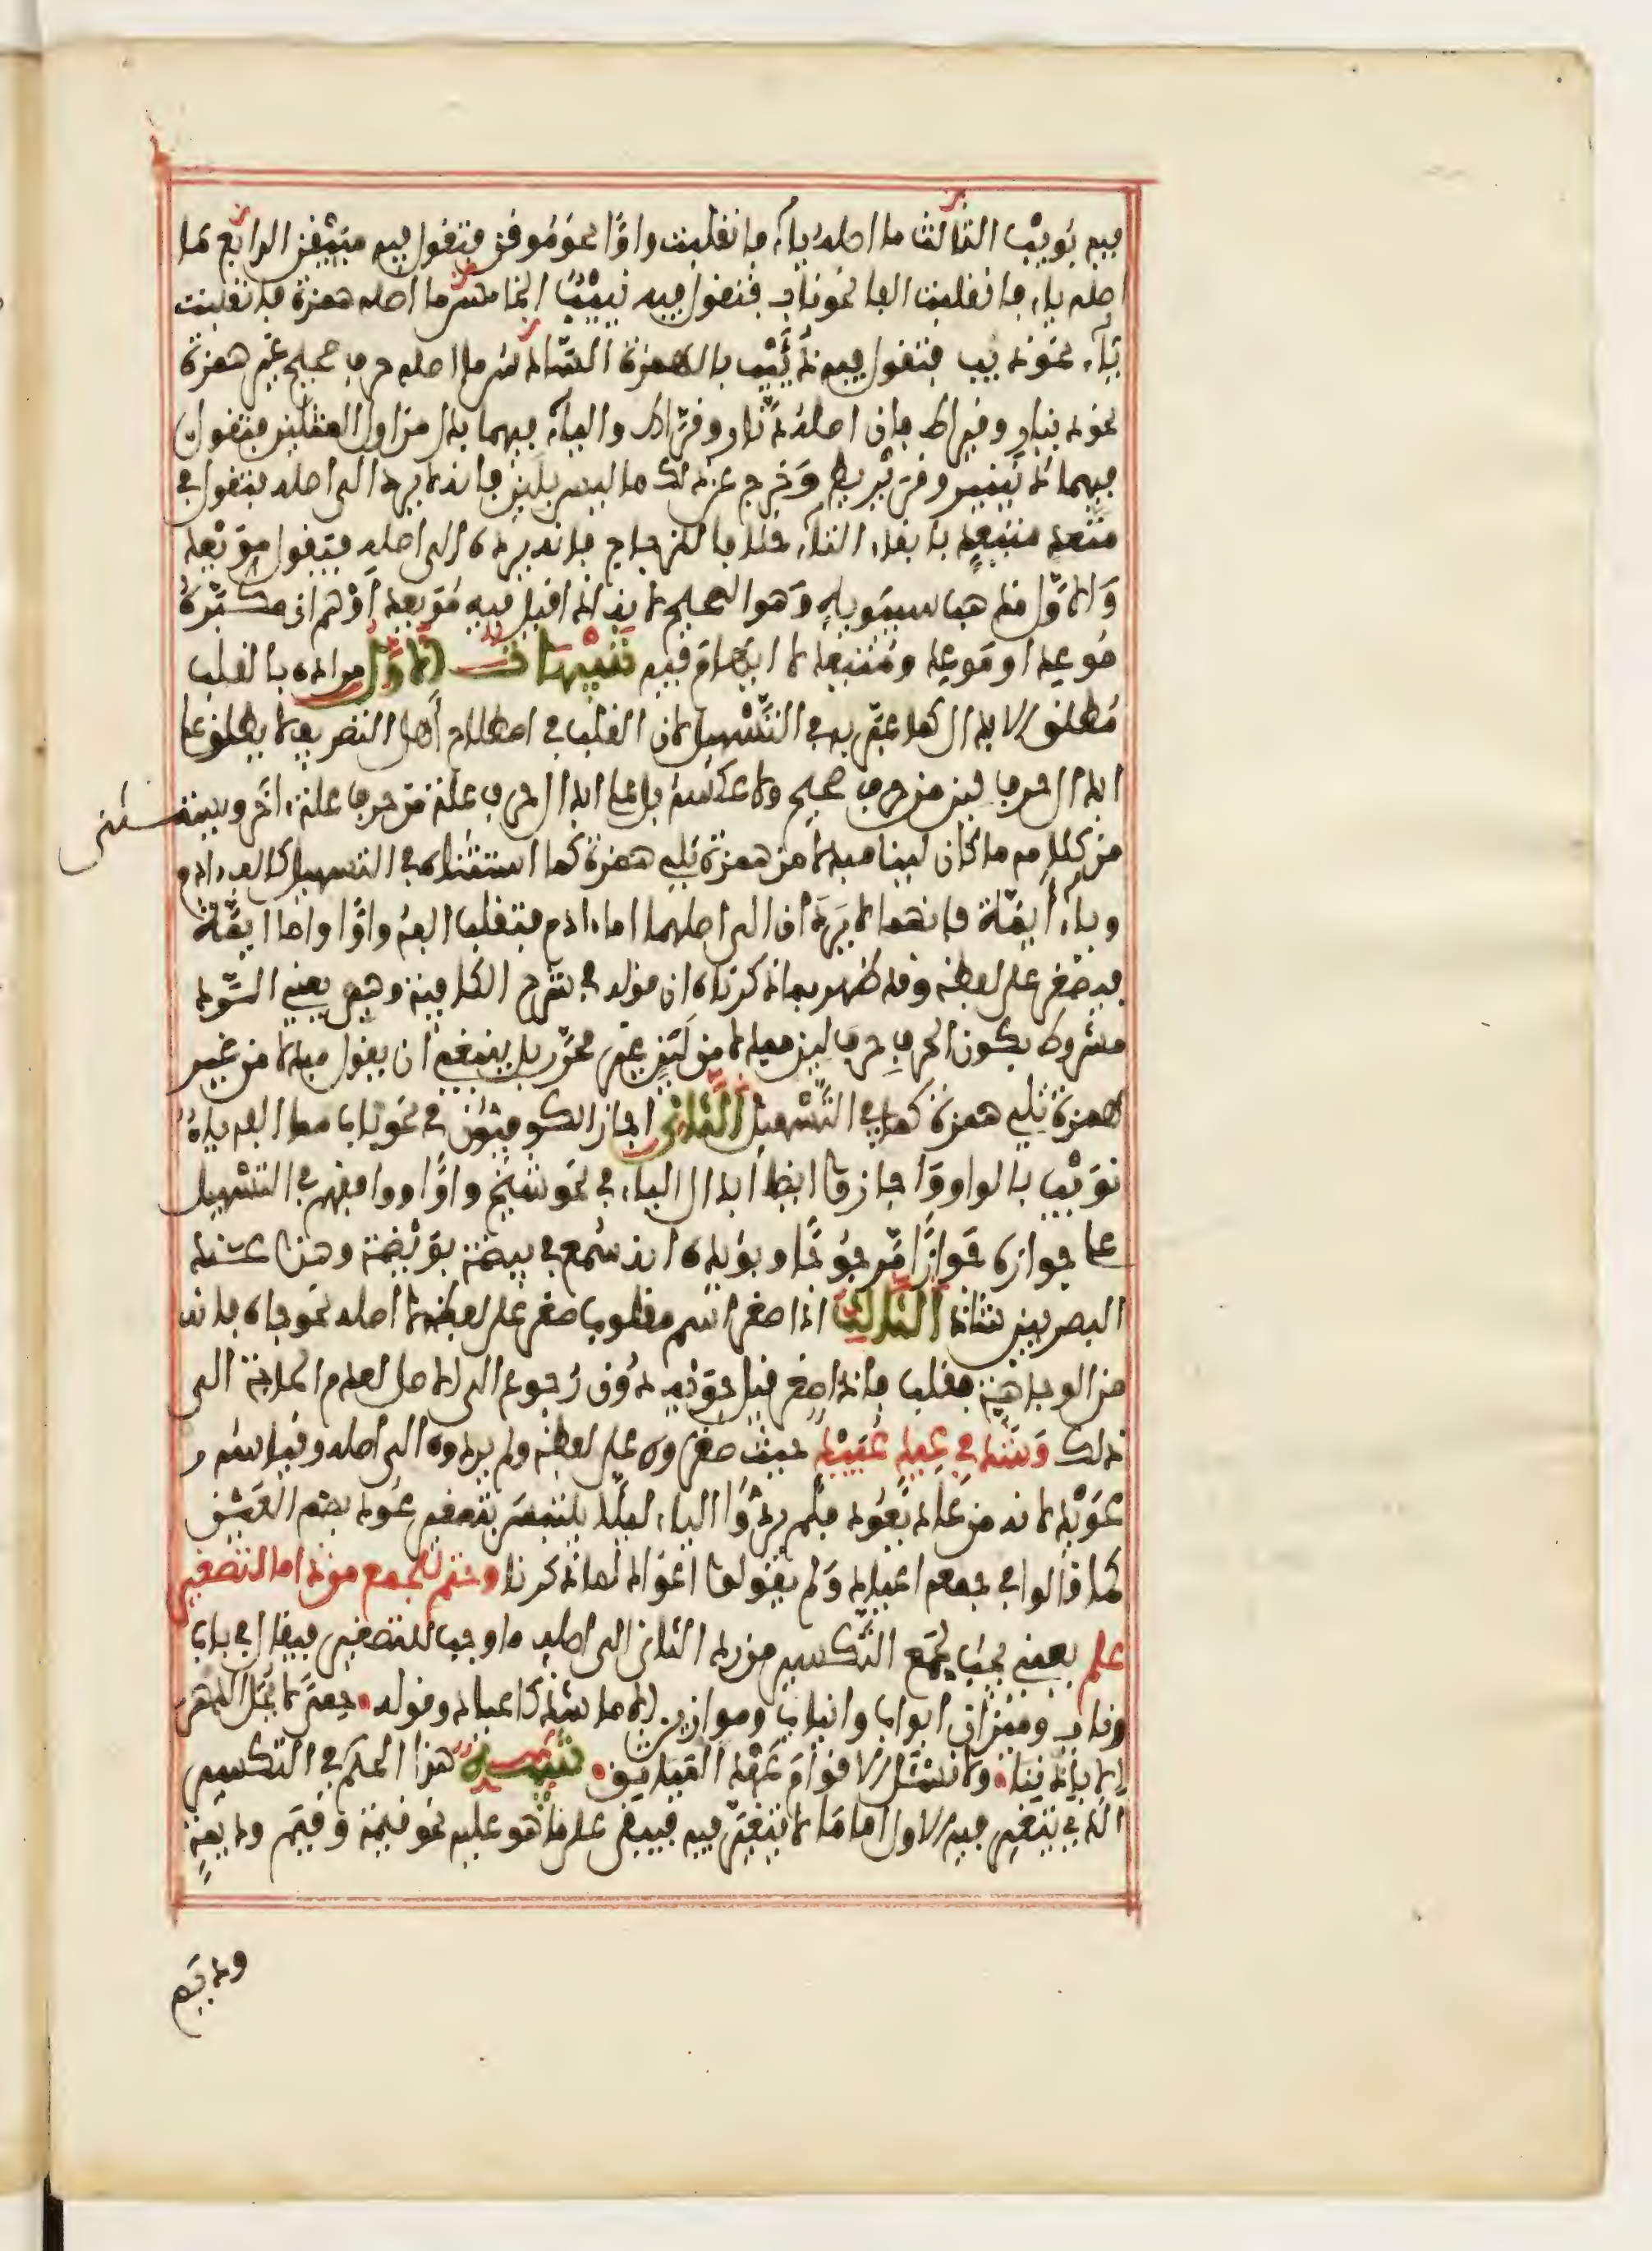 فيه بُوَيْب الثالث ما اصله ياء فانقلبت واوًا نحو مُوقن فتقول فيه مُيَيْقِن الرابع ما
اصله ياء فانقلبت الفا نحو ناب فتقول فيه نُيَيْب الخامس ما اصله همزة فانقلبت
ياء نحو ذيب فتقول فيه ذُؤَيْب بالهمزة السادس ما اصله حرف صحيح غير همزة
نحو دينار وقيراط فان اصله دنّار وقرّاط والياء فيهما بدل من اول المثلين فتقول
فيهما دُنَيْنير وقُرَيْريط وخرج عن ذلك ما ليس بلين فانه لا يرد الى اصله فتقول في
متعد متيعد بابقاء التاء خلافا للزجاج فانه يرده الى اصله فتقول مويعد
والاول مذهب سيبويه وهو الصحيح لانه اذا قيل فيه مُويعد أوهم ان مكبّره
مُوعِد او مَوعِد ومُتيعد لا ايهام فيه تنبيهات الاول مراده بالقلب
مُطلق الابدال كما عبّر به في التَّسْهيل لان القلب في اصطلاح أهل التصريف لا يطلق على
ابدال حرف لين من حرف صحيح ولا عكسه بل على ابدال حرف علة من حرف علة ءاخر ويستثنى
من كلامه ما كان لينا مبدلا من همزة تلي همزة كما استثناه في التسهيل كالف ءادم
وياء أيمّة فانهما لا يردان الى اصلهما اما ءادم فتقلب الفه واوًا واما ايمَّة
فيصغر على لفظه وقد ظهر بما ذكرناه ان قوله في شرح الكافية وهو يعني الرد
مشروط بكون الحرف حرف لين مبدلا من لين غير محرّر بل ينبغي ان يقول مبدلا من غير
همزة تلي همزة كما في التَّسْهيل الثاني اجاز الكوفيون في نحو ناب مما الفه ياء
نُوَيْب بالواو وأجازوا ايضا ابدال الياء في نحو شيخ واوًا ووافقهم في التسهيل
على جوازه جَوَازًا مرجُوحًا ويؤيده انه سُمع في بيضة بُوَيْضة وهذا عند
البصريين شاذ الثالث اذا صغر اسم مقلوب صغر على لفظه لا اصله نحو جاه فانه
من الوجاهة فقلب فاذا صغر قيل جُوَيْه دُون رُجوع الى الاصل لعدم الحاجة الى
ذلك وَشَذّ في عيد عُيَيْد حيث صغروه على لفظه ولم يردوه الى اصله وقياسه
عُوَيْد لانه من عاد يَعُود فلم يردُّوا الياء ليلا يلتبس بتصغير عُود بضم العين
كما قالوا في جمعه اعياد وَلم يقولوا اعواد لما ذكرنا وحتم للجمع من ذا ما لتصغير
علم يعني يجب لجمع التكسير من رد الثاني الى اصله ما وجب للتصغير فيقال في باب
وناب وميزان ابواب وانياب وموازين الا ما شذ كاعياد وقوله • حِمًى لا يُحَل الدهر
الا باذننا • ولا نسْئَل الاقوام عَهْد المياثق • تنبيه هذا الحكم في التكسير
الذي يتغير فيه الاول اما ما لا يتغير فيه فيبقى على ما هو عليه نحو قيمة وقيم وديمة
وديم